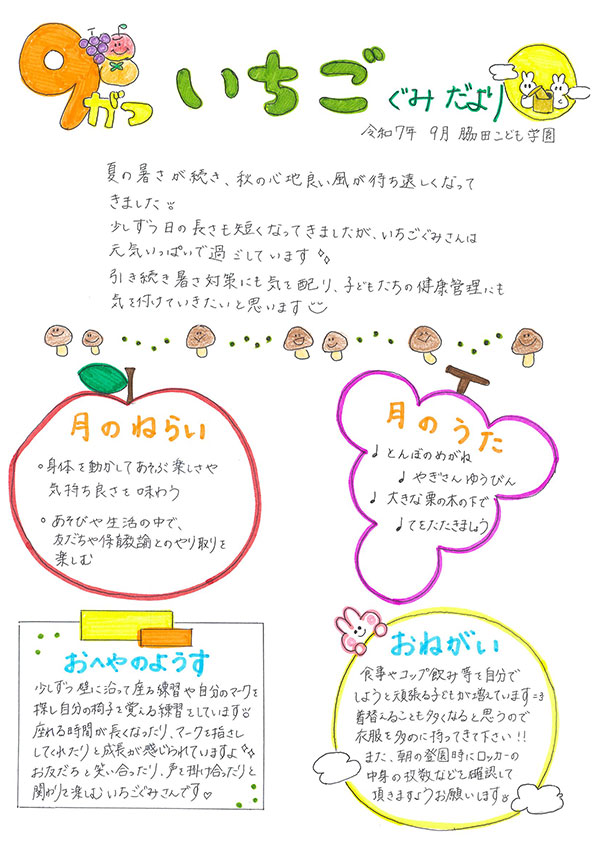 9がつ
いちご ぐみ だより
令和7年 9月 脇田こども学園
夏の暑さが続き、秋の心地良い風が待ち遠しくなって
きました
少しずつ日の長さも短くなってきましたが、いちごぐみさんは
元気いっぱいで過ごしています
引き続き暑さ対策にも気を配り、子どもたちの健康管理にも
気を付けていきたいと思います
月のねらい
○身体を動かしてあそぶ楽しさや
気持ち良さを味わう
○あそびや生活の中で、
友だちや保育教諭とのやり取りを
楽しむ
月のうた
♩とんぼのめがね
♩やぎさんゆうびん
♩大きな栗の木の下で
♩てをたたきましょう
おへやのようす
少しずつ壁に沿って座る練習や自分のマークを
探し自分の椅子を覚える練習をしています
座れる時間が長くなったり、マークを指さし
してくれたりと成長が感じられていますよ
お友だちと笑い合ったり、声を掛け合ったりと
関わりを楽しむいちごぐみさんです♡
おねがい
食事やコップ飲み等を自分で
しようと頑張る子どもが増えています
着替えることも多くなると思うので
衣服を多めに持ってきて下さい!!
また、朝の登園時にロッカーの
中身の枚数などを確認して
頂きますようお願いします